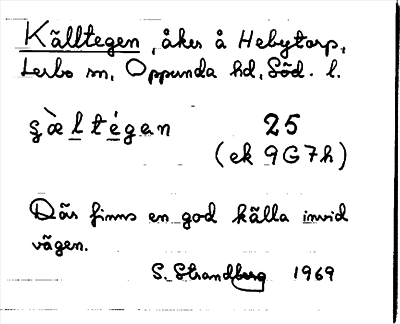 Källtegen, åker å Hebytorp,
Lerbo sn, Oppunda hd, Söd. l.
ʂæ̀ltégan 25
(ek 9G7h)
Där finns en god källa invid
vägen.
S. Strandberg 1969